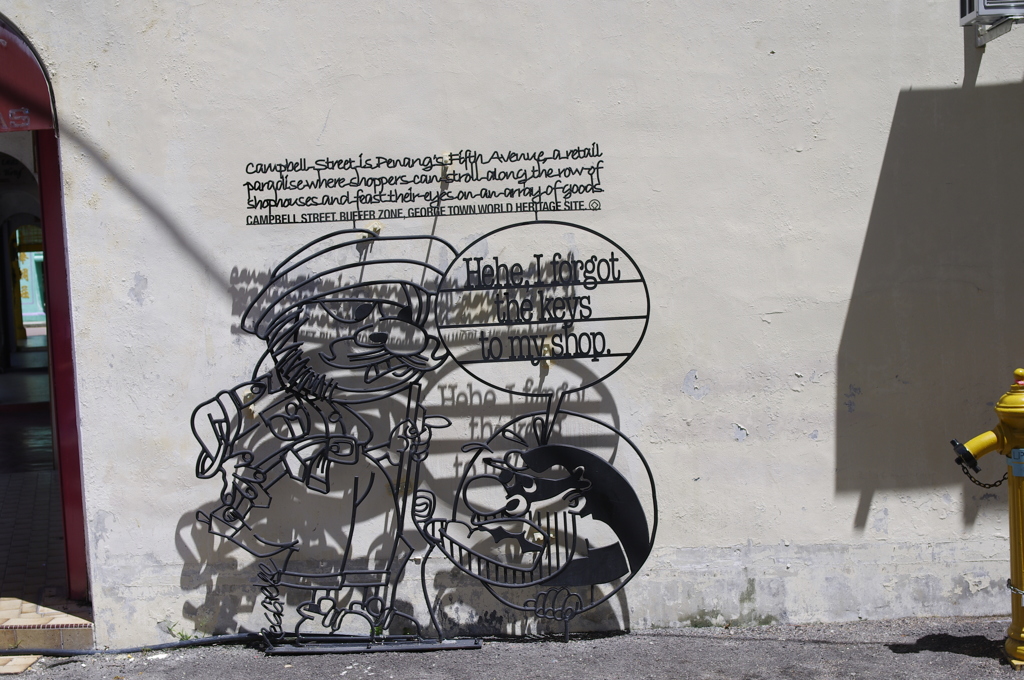 Campbell Street is Penang's Fifth Avenue, a retail
paradise where shoppers can stroll along the row of
shophouses and feast their eyes on an array of goods
CAMPBELL STREET, BUFFER ZONE, GEORGE TOWN WORLD HERITAGE SITE.
Hehe, I forgot
the keys
to my shop.